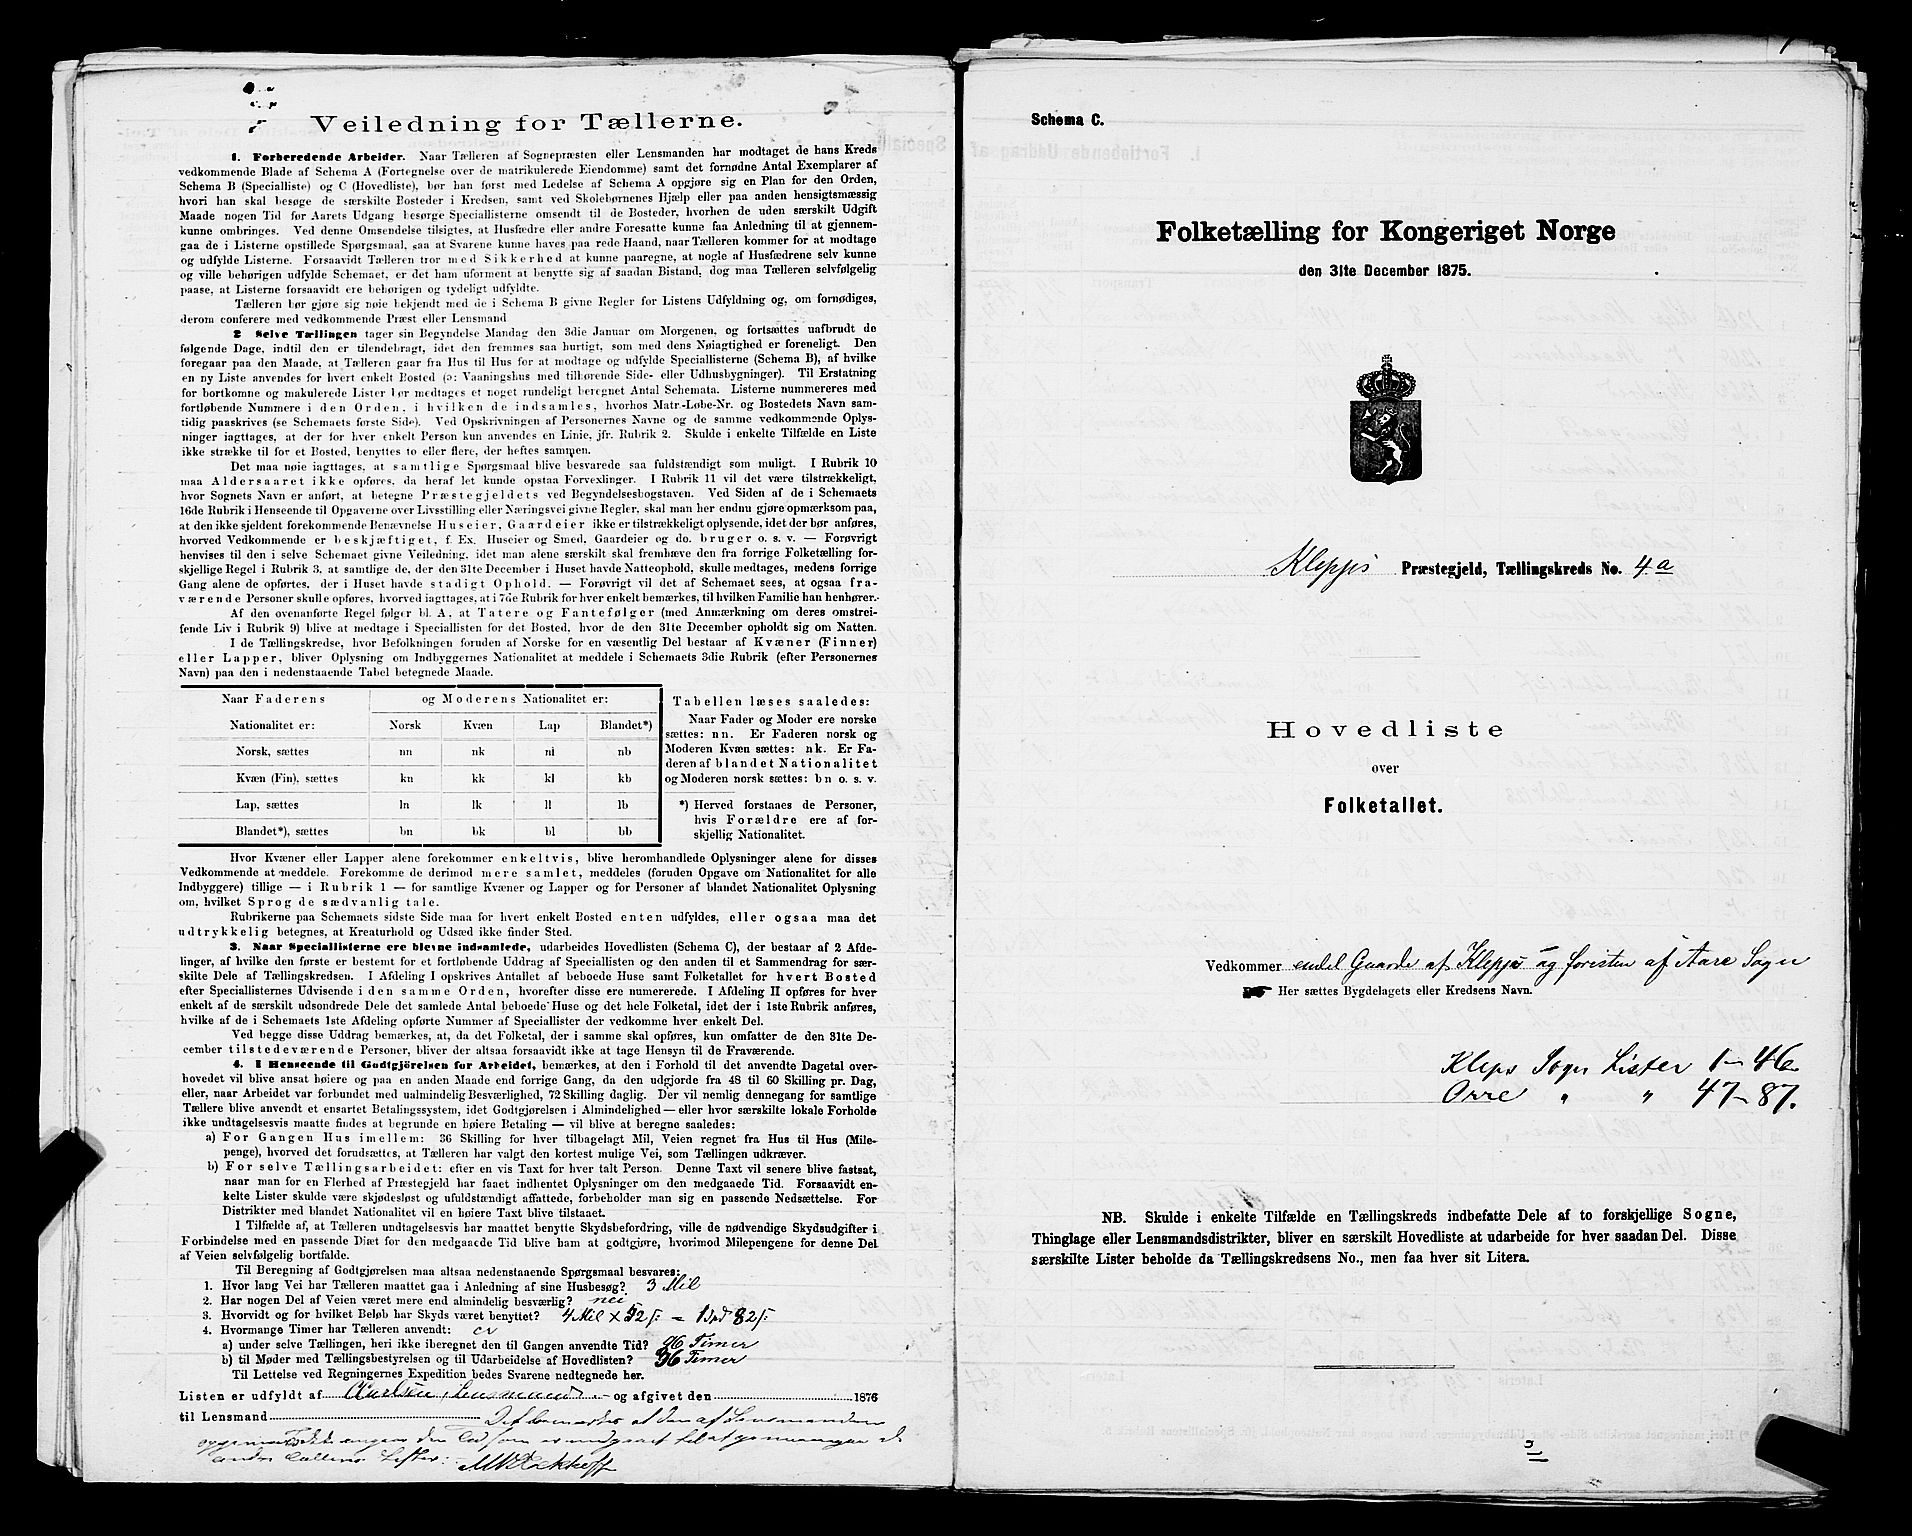 Veiledning for Tællerne.
1. Forberedende Arbeider. Naar Tælleren af Sognepræsten eller Lensmanden har modtaget de hans Kreds
vedkommende Blade af Schema A (Fortegnelse over de matrikulerede Eiendomme) samt det fornødne Antal Exemplarer af
Schema B (Specialliste) og C (Hovedliste), bør han først med Ledelse af Schema A opgjøre sig en Plan for den Orden,
hvori han skal besøge de særskilte Bosteder i Kredsen, samt ved Skolebørnenes Hjælp eller paa anden hensigtsmæssig
Maade nogen Tid før Aarets Udgang besørge Speciallisterne omsendt til de Bosteder, hvorhen de uden særskilt Udgift
kunne ombringes. Ved denne Omsendelse tilsigtes, at Husfædre eller andre Foresatte kunne faa Anledning til at gjennem-
gaa de i Listerne opstillede Spørgsmaal, saa at Svarene kunne haves paa rede Haand, naar Tælleren kommer for at modtage
og udfylde Listerne. Forsaavidt Tælleren tror med Sikkerhed at kunne paaregne, at nogle af Husfædrene selv kunne
og ville behørigen udfylde Schemaet, er det ham uforment at benytte sig af saadan Bistand, dog maa Tælleren selvfølgelig
paase, at Listerne forsaavidt ere behørigen og tydeligt udfyldte.
Tælleren bør gjøre sig nøie bekjendt med de i Schema B givne Regler for Listens Udfyldning og, om fornødiges,
derom conferere med vedkommende Præst eller Lensmand
2 Selve Tællingen tager sin Begyndelse Mandag den 3die Januar om Morgenen, og fortsættes uafbrudt de
følgende Dage, indtil den er tilendebragt, idet den fremmes saa hurtigt, som med dens Nøiagtighed er foreneligt. Den
foregaar paa den Maade, at Tælleren gaar fra Hus til Hus for at modtage og udfylde Speciallisterne (Schema B), af hvilke
en ny Liste anvendes for hvert enkelt Bosted (ɔ: Vaaningshus med tilhørende Side- eller Udhusbygninger). Til Erstatning
for bortkomne og makulerede Lister bør medtages et noget rundeligt beregnet Antal Schemata. Listerne nummereres med
fortløbende Nummere i den Orden, i hvilken de indsamles, hvorhos Matr.-Løbe-Nr. og Bostedets Navn sam-
tidig paaskrives (se Schemaets første Side). Ved Opskrivningen af Personernes Navne og de samme vedkommende Oplys-
ninger iagttages, at der for hver enkelt Person kun anvendes en Linie, jfr. Rubrik 2. Skulde i enkelte Tilfælde en Liste
ikke strække til for et Bosted, benyttes to eller flere, der heftes sammen.
Det maa nøie iagttages, at samtlige Spørgsmaal blive besvarede saa fuldstændigt som muligt. I Rubrik 10
maa Aldersaaret ikke opføres, da heraf let kunde opstaa Forvexlinger. I Rubrik 11 vil det være tilstrækkeligt,
hvor Sognets Navn er anført, at betegne Præstegjeldets ved Begyndelsesbogstaven. Ved Siden af de i Schemaets
16de Rubrik i Henseende til Opgaverne over Livsstilling eller Næringsvei givne Regler, skal man her endnu gjøre opmærksom paa,
at den ikke sjeldent forekommende Benævnelse Huseier, Gaardeier ikke er tilstrækkeligt oplysende, idet der bør anføres,
hvorved Vedkommende er beskjæftiget, f. Ex. Huseier og Smed, Gaardeier og do. bruger o. s. v. — Forøvrigt
henvises til den i selve Schemaet givne Veiledning, idet man alene særskilt skal fremhæve den fra forrige Folketælling for-
skjellige Regel i Rubrik 3, at samtlige de, der den 31te December i Huset havde Natteophold, skulle medtages, medens forrige
Gang alene de opførtes, der i Huset havde stadigt Ophold. — Forøvrigt vil det af Schemaet sees, at ogsaa fra-
værende Personer skulle opføres, hvorved iagttages, at i 7de Rubrik for hver enkelt bemærkes, til hvilken Familie han henhører.
Af den ovenanførte Regel følger bl. A. at Tatere og Fantefølger (med Anmærkning om deres omstrei-
fende Liv i Rubrik 9) blive at medtage i Speciallisten for det Bosted, hvor de den 31te December opholdt sig om Natten.
I de Tællingskredse, hvor Befolkningen foruden af Norske for en væsentlig Del bestaar af Kvæner (Finner)
eller Lapper, bliver Oplysning om Indbyggernes Nationalitet at meddele i Schemaets 3die Rubrik (efter Personernes
Navn) paa den i nedenstaaende Tabel betegnede Maade.
Naar Faderens og Moderens Nationalitet er:
Nationalitet er: Norsk Kvæn Lap Blandet*)
Norsk, sættes nn nk nl nb
Kvæn (Fin), sættes kn kk kl kb
Lap, sættes ln lk ll lb
Blandet*), sættes bn bk bl bb
Tabellen læses saaledes:
Naar Fader og Moder ere norske
sættes: nn. Er Faderen norsk og
Moderen Kvæn sættes: nk. Er Fa-
deren af blandet Nationalitet
og Moderen norsk sættes: bn o. s. v.
*) Herved forstaaes de Personer,
hvis Forældre ere af for-
skjellig Nationalitet.
Hvor Kvæner eller Lapper alene forekommer enkeltvis, blive heromhandlede Oplysninger alene for disses
Vedkommende at meddele. Forekomme de derimod mere samlet, meddeles (foruden Opgave om Nationalitet for alle
Indbyggere) tillige — i Rubrik 1 — for samtlige Kvæner og Lapper og for Personer af blandet Nationalitet Oplysning
om, hvilket Sprog de sædvanlig tale.
Rubrikerne paa Schemaets sidste Side maa for hvert enkelt Bosted enten udfyldes, eller ogsaa maa det
udtrykkelig betegnes, at Kreaturhold og Udsæd ikke finder Sted.
3. Naar Speciallisterne ere blevne indsamlede, udarbeides Hovedlisten (Schema C), der bestaar af 2 Afde-
linger, af hvilke den første er bestemt for et fortløbende Uddrag af Speciallisten og den anden til et Sammendrag for sær-
skilte Dele af Tællingskredsen. I Afdeling I opskrives Antallet af beboede Huse samt Folketallet for hvert Bosted
efter Speciallisternes Udvisende i den samme Orden, hvorefter disse ere numererede. I Afdeling II opføres for hver
enkelt af de særskilt udsondrede Dele det samlede Antal beboede Huse og det hele Folketal, idet der i 1ste Rubrik anføres,
hvilke af de i Schemaets 1ste Afdeling opførte Nummer af Speciallister der vedkomme hver enkelt Del.
Ved begge disse Uddrag bemærkes, at, da det Folketal, der i samme skal opføres, kun omfatter de den 31te De-
cember tilstedeværende Personer, bliver der altsaa forsaavidt ikke at tage Hensyn til de Fraværende.
4. I Henseende til Godtgjörelsen for Arbeidet, bemærkes, at den i Forhold til det anvendte Dagetal over-
hovedet vil blive ansat høiere og paa en anden Maade end forrige Gang, da den udgjorde fra 48 til 60 Skilling pr. Dag,
eller, naar Arbeidet var forbundet med ualmindelig Besværlighed, 72 Skilling daglig. Der vil nemlig dennegang for samtlige
Tællere blive anvendt et ensartet Betalingssystem, idet Godtgjørelsen i Almindelighed — eller hvor særskilte lokale Forholde
ikke undtagelsesvis maatte findes at begrunde en høiere Betaling — vil blive at beregne saaledes:
a) For Gangen Hus imellem: 36 Skilling for hver tilbagelagt Mil, Veien regnet fra Hus til Hus (Mile-
penge), hvorved det forudsættes, at Tælleren har valgt den kortest mulige Vei, som Tællingen udkræver.
b) For selve Tællingsarbeidet: efter en vis Taxt for hver talt Person. Denne Taxt vil senere blive fastsat,
naar man for en Flerhed af Præstegjeld har faaet indhentet Oplysninger om den medgaaede Tid. Forsaavidt en-
kelte Lister skulde være skjødesløst og ufuldstændigt affattede, forbeholder man sig en passende Nedsættelse. For
Distrikter med blandet Nationalitet vil en høiere Taxt blive tilstaaet.
I Tilfælde af, at Tælleren undtagelsesvis har maattet benytte Skydsbefordring, ville de nødvendige Skydsudgifter i
Forbindelse med en passende Diæt for den medgaaede Tid blive ham at godtgjøre, hvorimod Milepengene for denne Del
af Veien selvfølgelig bortfalde.
Til Beregning af Godtgjørelsen maa altsaa nedenstaaende Spørgsmaal besvares:
1. Hvor lang Vei har Tælleren maattet gaa i Anledning af sine Husbesøg? 3 Mil
2. Har nogen Del af Veien været mere end almindelig besværlig? nei
3. Hvorvidt og for hvilket Beløb har Skyds været benyttet? 4 Mil x 52 /: = 1 82 /:
4. Hvormange Timer har Tælleren anvendt: ca
a) under selve Tællingen, heri ikke iberegnet den til Gangen anvendte Tid? 96 Timer
b) til Møder med Tællingsbestyrelsen og til Udarbeidelse af Hovedlisten? 36 Timer
Til Lettelse ved Regningernes Expedition bedes Svarene nedtegnede her.
Listen er udfyldt af Lensmand og afgivet den 1876
til Lensmand Det bemærkes at den af Lensmanden
andre Lister:
Schema C.
Folketælling for Kongeriget Norge
den 31te December 1875.
Klepps Præstegjeld, Tællingskreds No. 4a
Hovedliste
over
Folketallet.
Vedkommer endel Gaarde af Klepps og föresten af Aare Sogn
Her sættes Bygdelagets eller Kredsens Navn.
Kleps Sogn Lister 1 - 46
Orre " " 47 - 87.
NB. Skulde i enkelte Tilfælde en Tællingskreds indbefatte Dele af to forskjellige Sogne,
Thinglage eller Lensmandsdistrikter, bliver en særskilt Hovedliste at udarbeide for hver saadan Del. Disse
særskilte Lister beholde da Tællingskredsens No., men faa hver sit Litera.